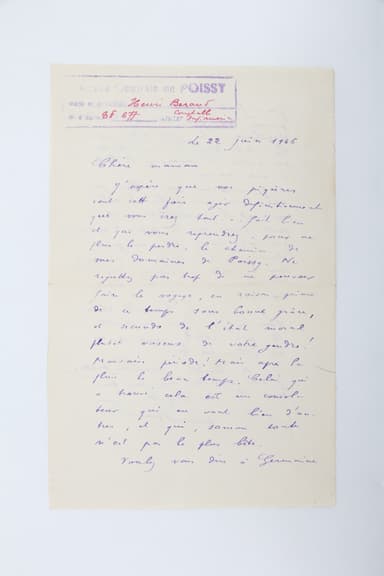 POISSY
Henri Béraud
le 22 juin 1946
Chère maman
J'espère que vos piqûres
ont cette fois agi définitivement
que vous irez tout à fait bien
et que vous reprendrez, pour ne
plus le perdre, le chemin de
mes domaines de Poissy. Ne
regrettez pas trop de ne pouvoir
faire le voyage, en raison primo
de ce temps sans bonne grâce,
et secundo de l'état moral
plutôt vaseux de votre gendre!
Mauvaise période! Mais après la
pluie le beau temps. Celui qui
a trouvé cela est un consola-
teur qui en vaut bien d'au-
tres, et qui, somme toute
n'est pas le plus bête.
Voulez-vous dire à Germaine